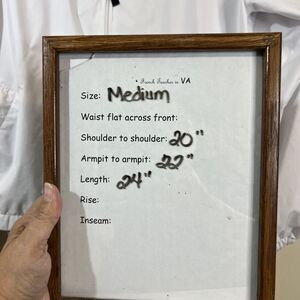 French Teacher in VA
Size: Medium
Waist flat across front:
Shoulder to shoulder: 20"
Armpit to armpit: 22"
Length: 24"
Rise:
Inseam: